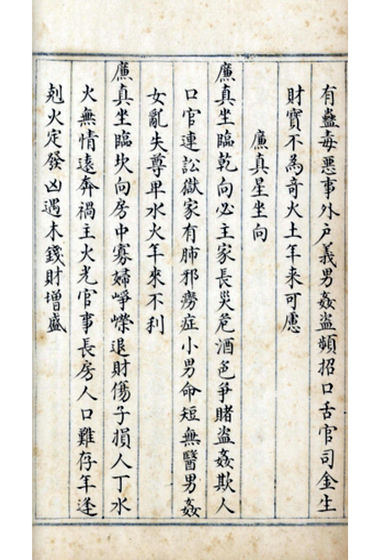 有蠱毒惡事外戶義男姦盜頻招口舌官司金生
財寶不為奇火土年来可慮
廉真星坐向
廉真坐臨乾向必主家長災危酒色爭賭盜姦欺人
口官連訟獄家有肺邪癆症小男命短無醫男姦
女亂失尊卑水火年來不利
廉真坐臨坎向房中寡婦爭嶸退財傷子損人丁水
火無情遠奔禍主火光官事長房人口難存年逢
剋火定發凶遇木錢財增盛